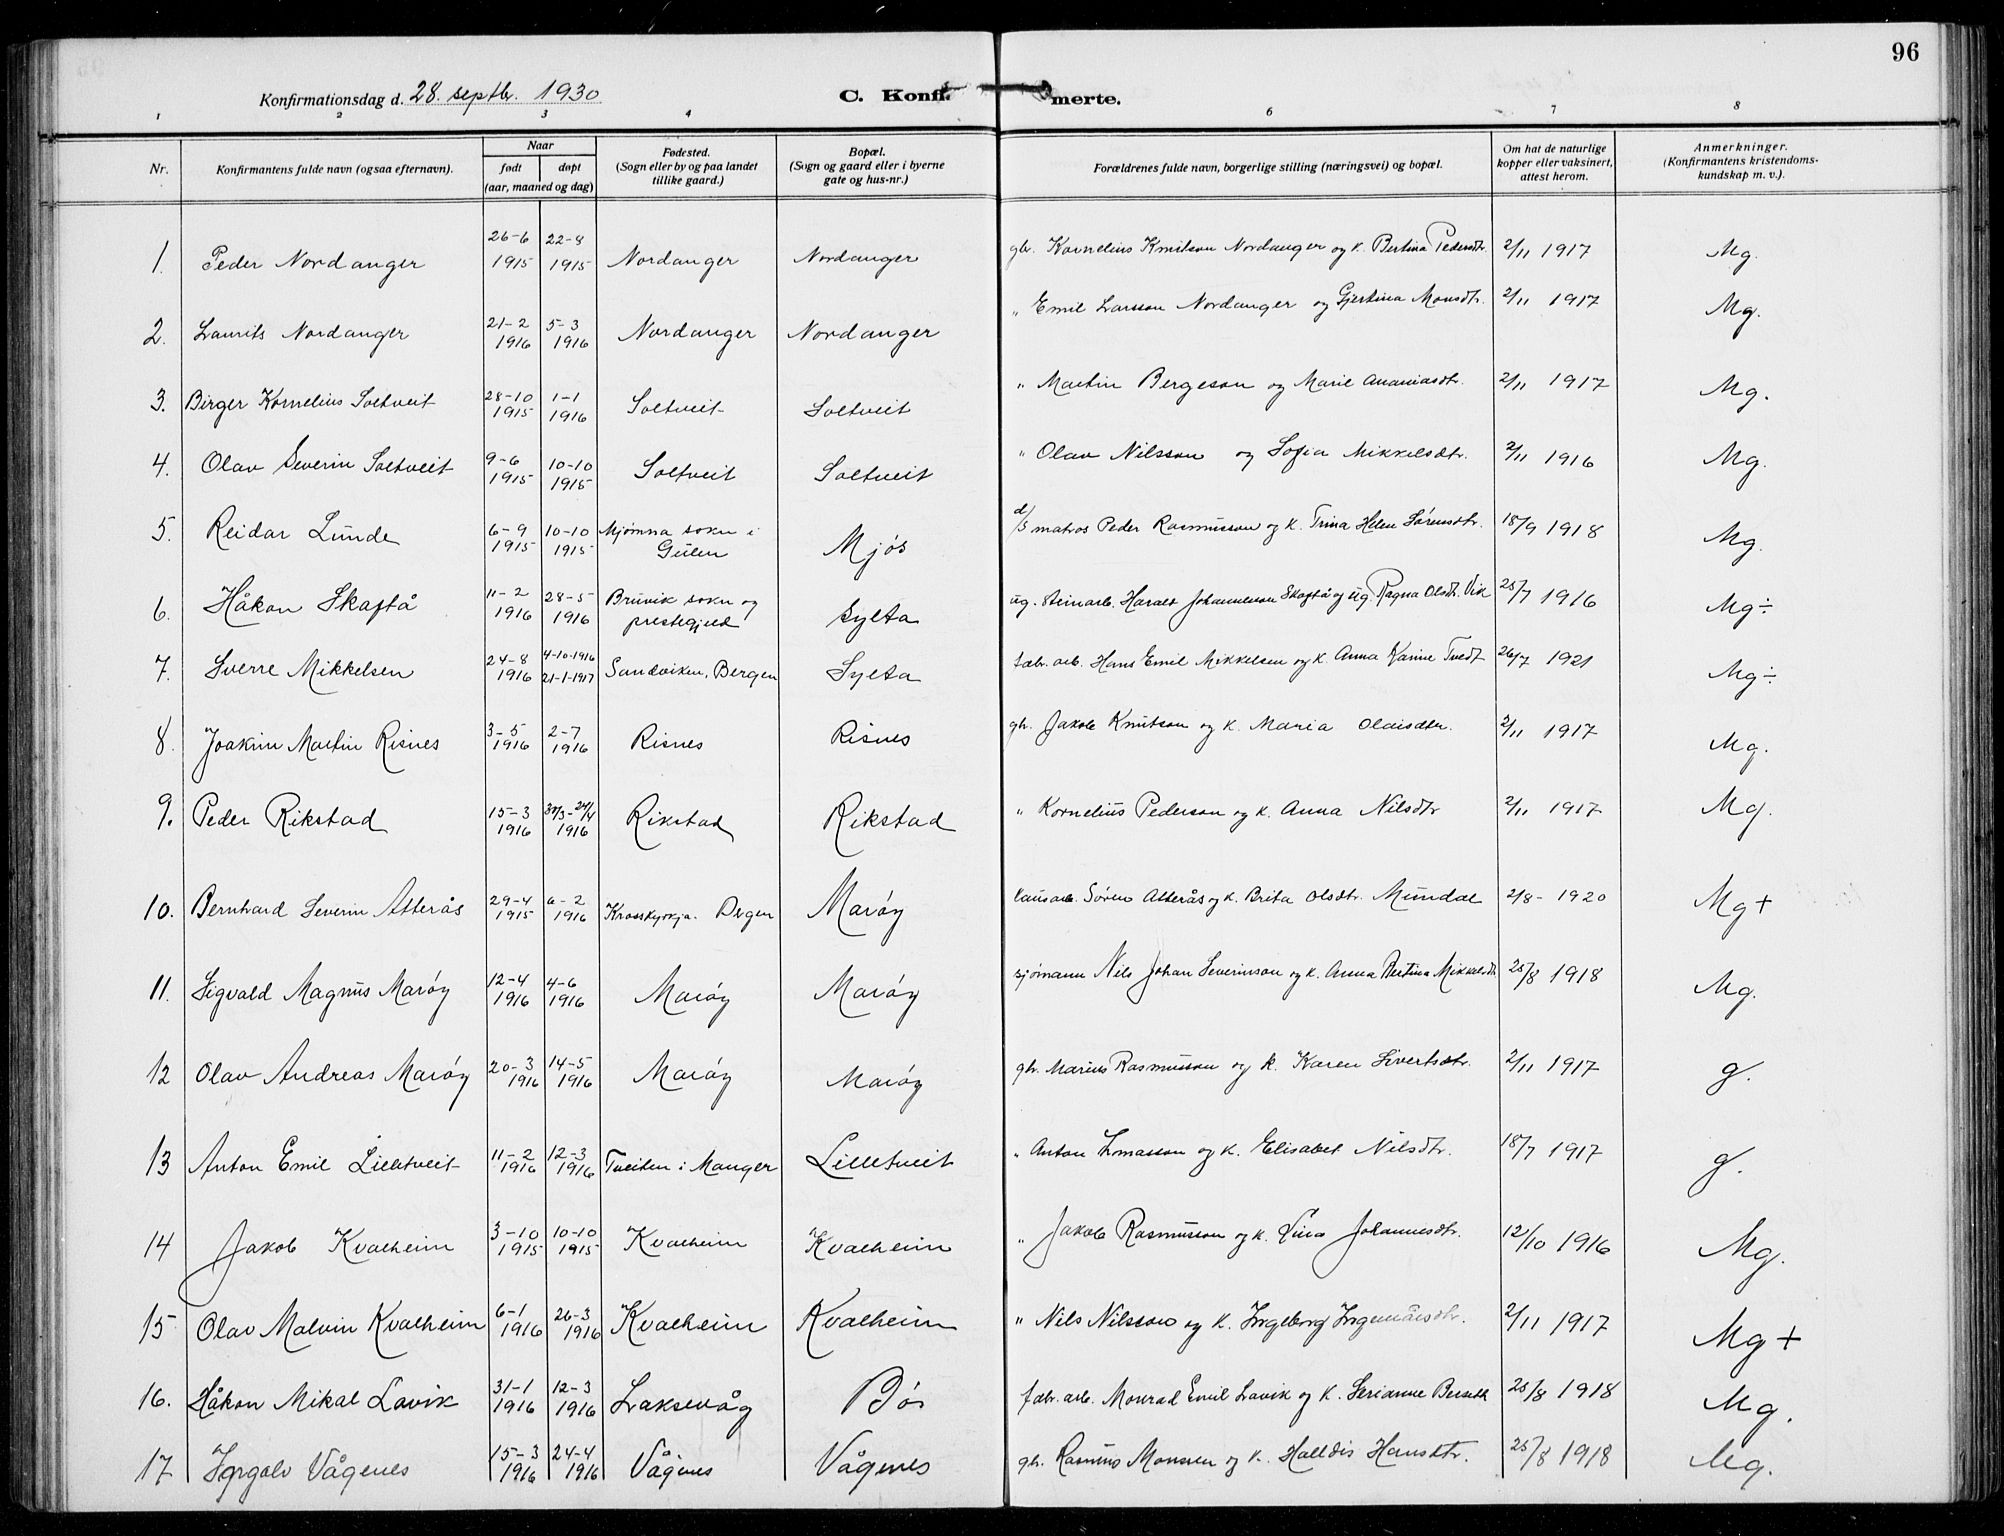 96
Konfirmationsdag d. 28. septbr. 1930 C. Konfi merte.
1 2 3 4 6 7 8
Nr. Konfirmantens fulde navn (ogsaa efternavn). Naar født døpt (aar, maaned og dag) Fødested. (Sogn eller by og paa landet tillike gaard.) Bopæl. (Sogn og gaard eller i byerne gate og hus-nr.) Forældrenes fulde navn, borgerlige stilling (næringsvei) og bopæl. Om hat de naturlige kopper eller vaksinert, attest herom. Anmerkninger. (Konfirmantens kristendoms-kundskap m. v.).
1. Peder Nordanger 26-6 1915 22-8 1915 Nordanger Nordanger gbr. Kornelius Knutson Nordanger og k. Bertina Pedersdtr. 2/11 1917 Mg.
2. Laurits Nordanger 21-2 1916 5-3 1916 Nordanger Nordanger " Emil Larsson Nordanger og Gjertina Monsdtr. 2/11 1917 Mg.
3. Birger Kornelius Soltveit 28-10 1915 1-1 1916 Soltveit Soltveit " Martin Bergeson og Marie Ananiasdtr. 2/11 1917 Mg.
4. Olav Severin Soltveit 9-6 1915 10-10 1915 Soltveit Soltveit " Olav Nilsson og Sofia Mikkelsdtr. 2/11 1916 Mg.
5. Reidar Lunde 6-9 1915 10-10 1915 Mjømna sokn i Gulen Mjøs d/s matros Peder Rasmusson og k. Trina Helen Sørensdtr. 18/9 1918 Mg.
6. Håkon Skaftå 11-2 1916 28-5 1916 Bruvik sokn og prestegjeld Sylta ug. steinarb. Harald Johannesson Skaftå og ug. Ragna Olsdtr. Vik 25/7 1916 Mg÷
7. Sverre Mikkelsen 24-8 1916 4-10-1916 21-1-1917 Sandviken, Bergen Sylta fabr. arb. Hans Emil Mikkelsen og k. Anna Karine Tvedt 26/7 1921 Mg÷
8. Joakim Martin Risnes 3-5 1916 2-7 1916 Risnes Risnes gbr. Jakob Knutson og k. Maria Olaisdtr. 2/11 1917 Mg.
9. Peder Rikstad 15-3 1916 30/3-24/4 1916 Rikstad Rikstad " Kornelius Pederson og k. Anna Nilsdtr 2/11 1917 Mg.
10. Bernhard Severin Atterås 29-4 1915 6-2 1916 Krosskyrkja. Bergen Marøy Søren Atterås og k. Brita Olsdtr. Mundal 2/8-1920 Mg+
11. Sigvald Magnus Marøy 12-4 1916 4-6 1916 Marøy Marøy sjømann Nils Johan Severinson og k. Anna Bertina Mikkelsdtr 25/8 1918 Mg.
12 Olav Andreas Marøy 20-3 1916 14-5 1916 Marøy Marøy gbr. Marius Rasmusson og k. Karen Sivertsdtr. 2/11 1917 g.
13 Anton Emil Lilletveit 11-2 1916 12-3 1916 Tveiten i Manger Lilletveit " Anton Tomasson og k. Elisabet Nilsdtr. 18/7 1917 g.
14 Jakob Kvalheim 3-10 1915 10-10 1915 Kvalheim Kvalheim " Jakob Rasmusson og k. Lina Johannesdtr. 12/10 1916 Mg.
15 Olav Malvin Kvalheim 6-1 1916 26-3 1916 Kvalheim Kvalheim " Nils Nilsson og k. Ingeborg Ingemårsdtr. 2/11 1917 Mg+
16. Håkon Mikal Lavik 31-1 1916 12-3 1916 Laksevåg Bøs fabr. arb. Monrad Emil Lavik og k. Serianne Berseth 25/8 1918 Mg.
17 Ingolv Vågenes 15-3 1916 24-4 1916 Vågenes Vågenes gbr. Rasmus Monsen og k. Halldis Hansdtr. 25/8 1918 Mg.